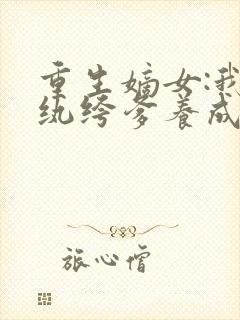 重生嫡女:我
纨绔爹养成
旅心僧